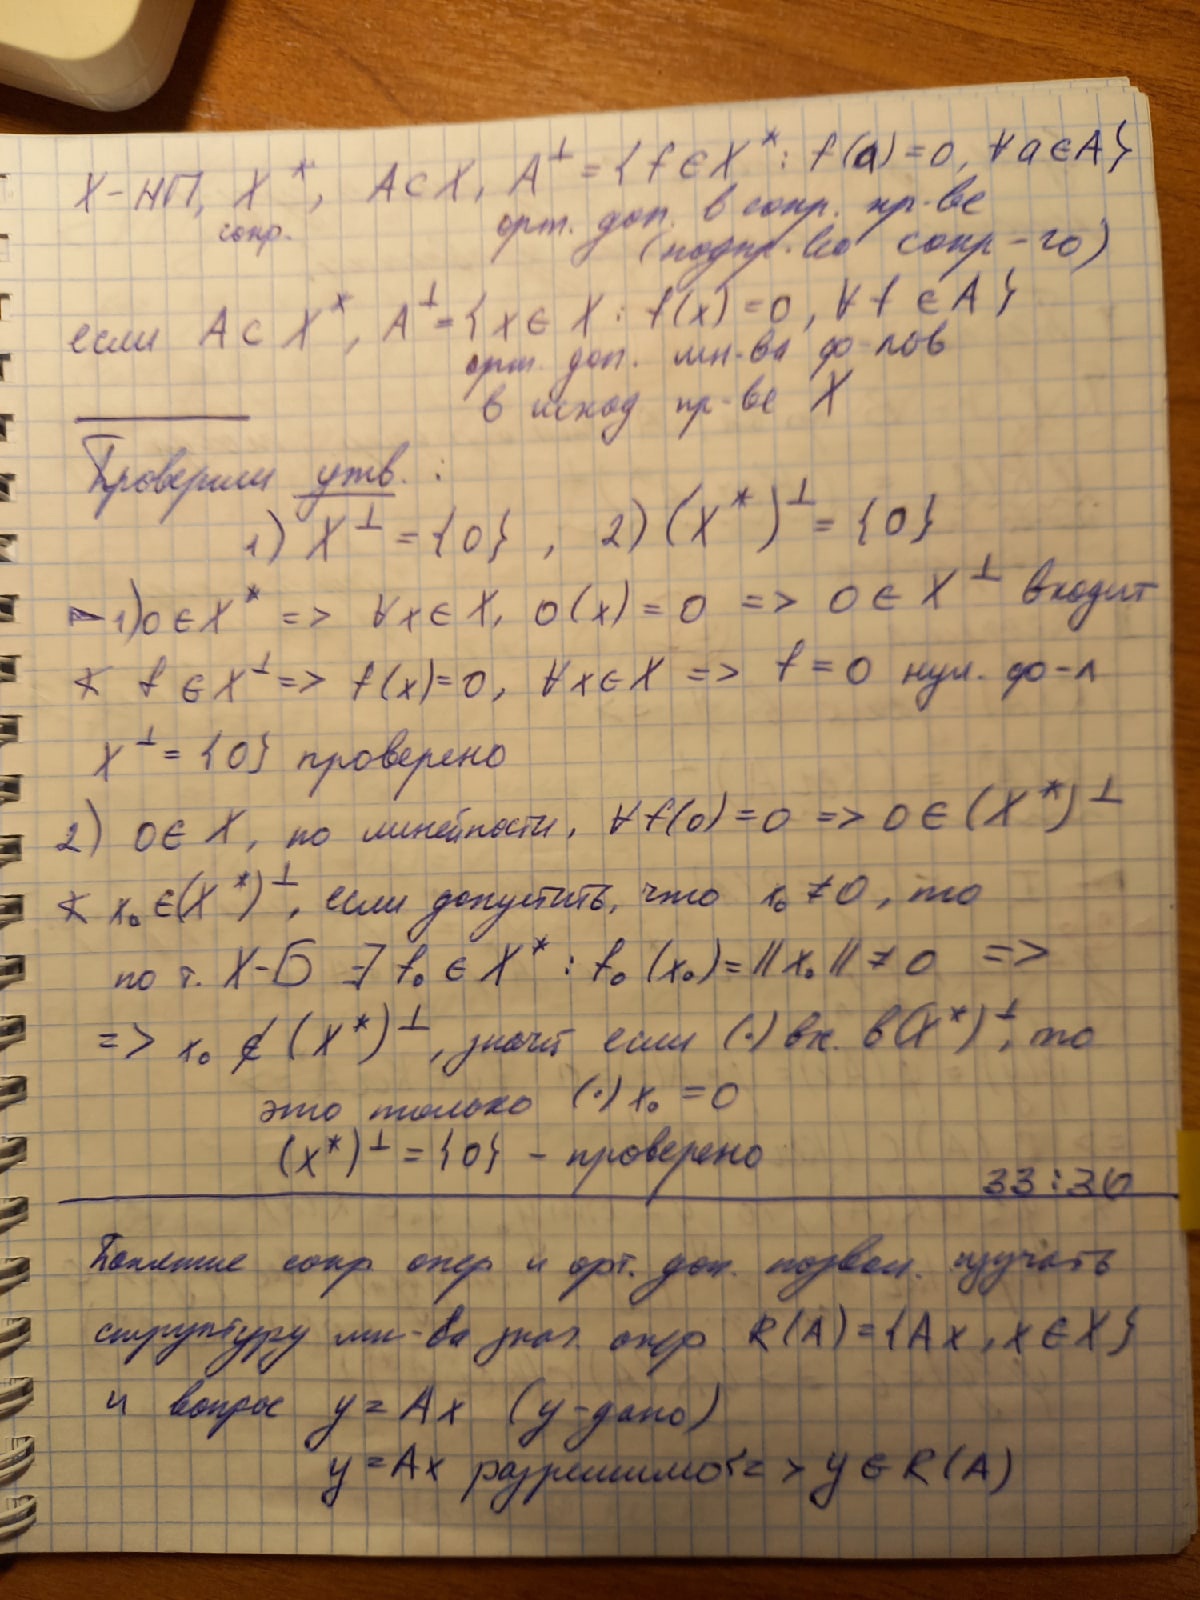 X-НП, X*, A⊂X, A^⊥ = {f∈X*: f(a)=0, ∀a∈A}
сопр. орт. доп. в сопр. пр-ве
(подпр-во сопр-го)
если A⊂X*, A^⊥ = {x∈X: f(x)=0, ∀f∈A}
орт. доп. мн-ва ф-лов
в исход пр-ве X
Проверили утв.:
1) X^⊥ = {0}, 2) (X*)^⊥ = {0}
- 1) 0∈X* => ∀x∈X, 0(x)=0 => 0∈X^⊥ входит
∢ f∈X^⊥ => f(x)=0, ∀x∈X => f=0 нул. ф-л
X^⊥ = {0} проверено
2) 0∈X, по линейности, ∀f(0)=0 => 0∈(X*)^⊥
∢ x₀∈(X*)^⊥, если допустить, что x₀≠0, то
по т. Х-Б ∃f₀∈X*: f₀(x₀)=||x₀||≠0 =>
=> x₀∉(X*)^⊥, значт если (·) вх. в (X*)^⊥, то
это только (·) x₀=0
(x*)^⊥ = {0} - проверено
33:36
Понятие сопр опер и орт. доп. позвол. изучать
структуру мн-ва знач. опер R(A)={Ax, x∈X}
и вопрос y=Ax (y-дано)
y=Ax разрешимо <=> y∈R(A)